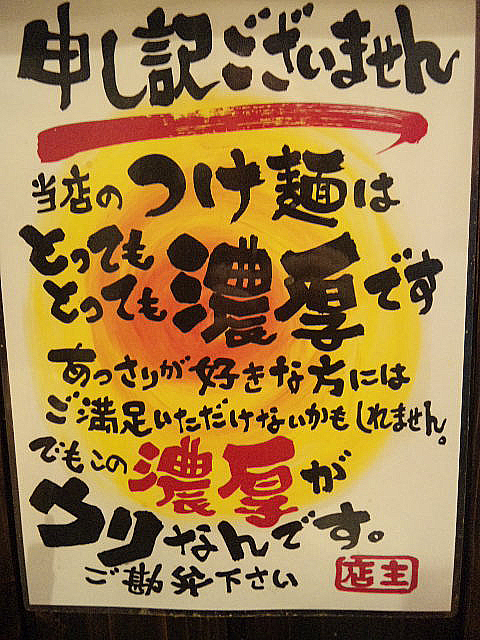 申し記ございません
当店のつけ麺は
とっても
とっても濃厚です
あっさりが好きな方には
ご満足いただけないかもしれません。
でもこの濃厚が
ウリなんです。
ご勘弁下さい
店主